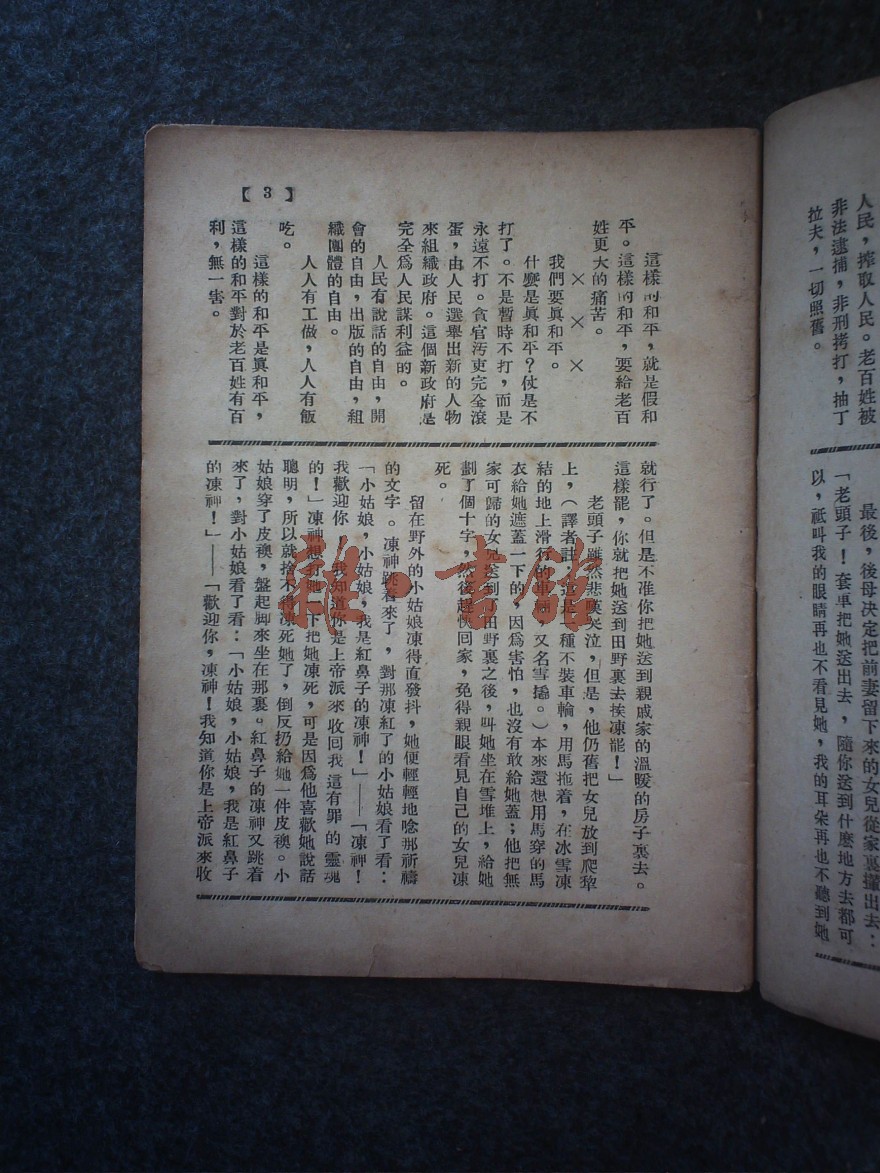 人民，搾取人民。老百姓被
非法逮捕，非刑拷打，抽丁
拉夫，一切照舊。
最後，後母决定把前妻留下來的女兒從家裏攆出去：
「老頭子！套車把她送出去，隨你送到什麽地方去都可
以，祇叫我的眼睛再也不看見她，我的耳朵再也不聽到她
【3】
這樣的和平，就是假和
平。這樣的和平，要給老百
姓更大的痛苦。
× × ×
我們要眞和平。
什麽是眞和平？仗是不
打了。不是暫時不打，而是
永遠不打。貪官汚吏完全滾
蛋，由人民選舉出新的人物
來組織政府。這個新政府是
完全爲人民謀利益的。
人民有說話的自由，開
會的自由，出版的自由，組
織團體的自由。
人人有工做，人人有飯
吃。
這樣的和平是眞和平，
這樣的和平對於老百姓有百
利，無一害。
就行了。但是不准你把她送到親戚家的溫暖的房子裏去。
這樣罷，你就把她送到田野裏去挨凍罷！」
老頭子雖然悲嘆哭泣，但是，他仍舊把女兒放到爬犂
上，（譯者註：這是一種不裝車輪，用馬拖着，在冰雪凍
結的地上滑行的車輛，又名雪撬。）本來還想用馬穿的馬
衣給她遮蓋一下的，因爲害怕，也沒有敢給她蓋；他把無
家可歸的女兒送到了田野裏之後，叫她坐在雪堆上，給她
劃了個十字，然後趕快回家，免得親眼看見自己的女兒凍
死。
留在野外的小姑娘凍得直發抖，她便輕輕地唸那祈禱
的文字。凍神跳着來了，對那凍紅了的小姑娘看了看：
「小姑娘，小姑娘，我是紅鼻子的凍神！」——「凍神！
我歡迎你，我知道你是上帝派來收回我這有罪的靈魂
的！」凍神想打她一下把她凍死，可是因爲他喜歡她說話
聰明，所以就捨不得凍死她了，倒反扔給她一件皮襖。小
姑娘穿了皮襖，盤起脚來坐在那裏。紅鼻子的凍神又跳着
來了，對小姑娘看了看：「小姑娘，小姑娘，我是紅鼻子
的凍神！」——「歡迎你，凍神！我知道你是上帝派來收
雜·書館